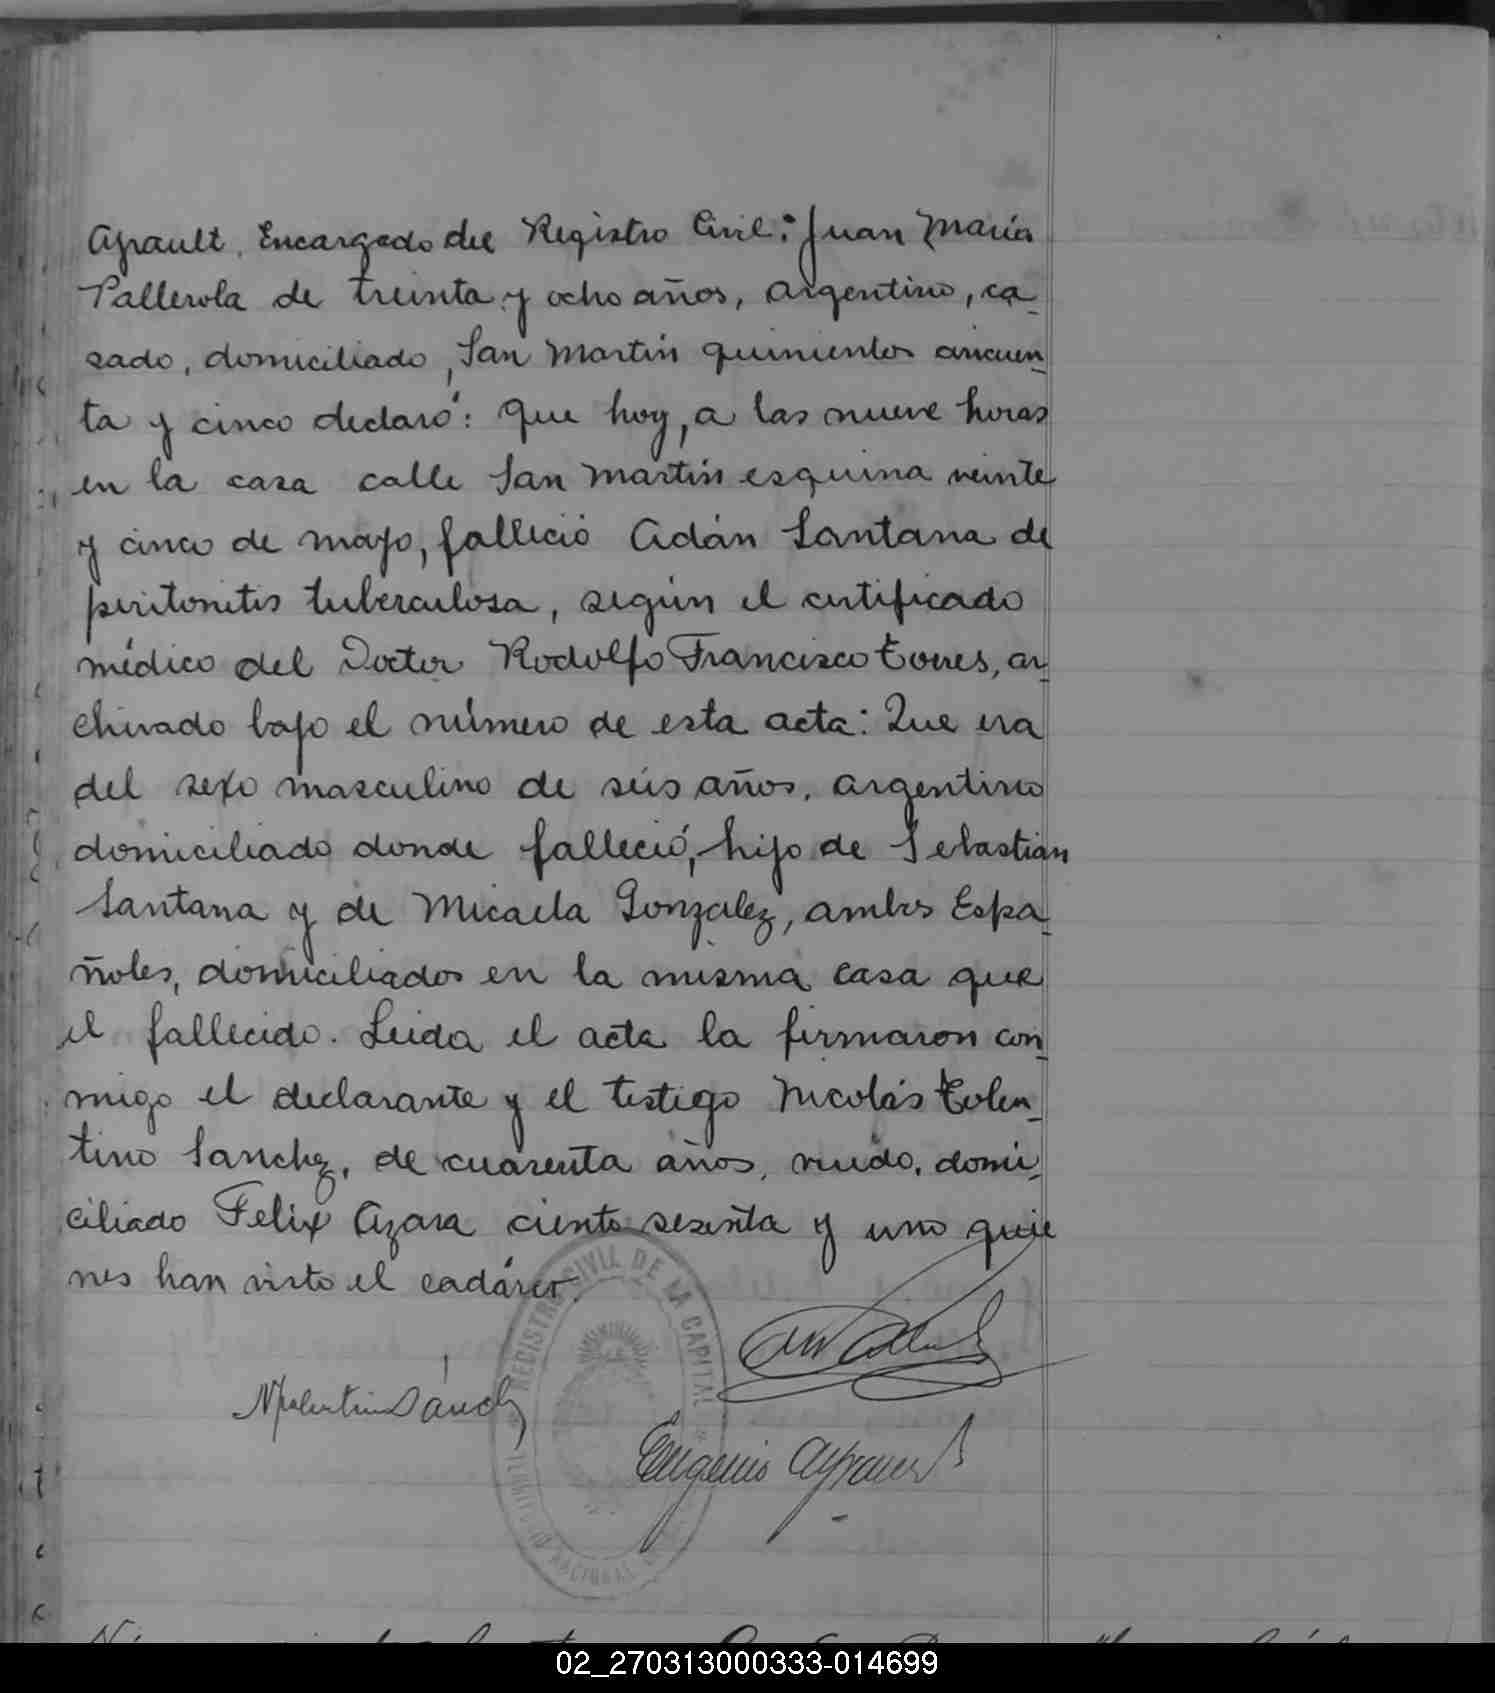 Ayrault, Encargado del Registro Civil: Juan María
Pallerola de treinta y ocho años, argentino, ca-
sado, domiciliado, San Martín quinientos cincuen-
ta y cinco declaró: Que hoy, a las nueve horas
en la casa calle San Martín esquina veinte
y cinco de mayo, falleció Adán Santana de
peritonitis tuberculosa, según el certificado
médico del Doctor Rodolfo Francisco Torres, ar-
chivado bajo el número de esta acta: Que era
del sexo masculino de séis años, argentino
domiciliado donde falleció, hijo de Sebastian
Santana y de Micaela Gonzalez, ambos Espa-
ñoles, domiciliados en la misma casa que
el fallecido. Leida el acta la firmaron con-
migo el declarante y el testigo Nicolás Tolen-
tino Sanchez, de cuarenta años, viudo, domi-
ciliado Felix Azara ciento sesenta y uno quie
nes han visto el cadáver.
REGISTRO CIVIL DE LA CAPITAL
NTolentino Sánchez
Eugenio Ayrault
02_270313000333-014699